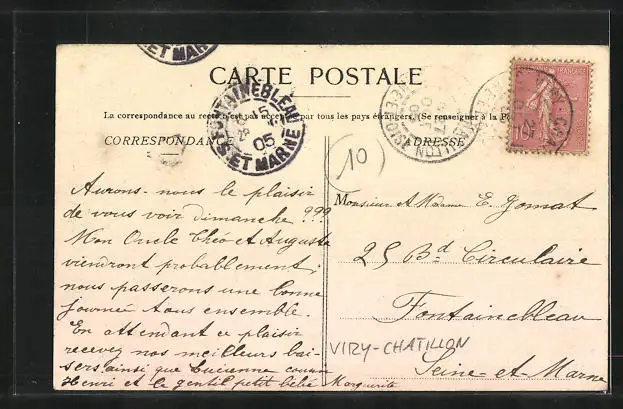 ET MARNE
CARTE POSTALE
FONTAINEBLEAU
05
ET MARNE
La correspondance au recto n'est pas acceptée par tous les pays étrangers. (Se renseigner à la
CORRESPONDANCE
ADRESSE
10
Aurons-nous le plaisir
de vous voir dimanche ???
Mon Oncle Théo et Auguste
viendront probablement;
nous passerons une bonne
journée tous ensemble.
En attendant ce plaisir
recevez nos meilleurs bai-
sers ainsi que Lucienne cousin
Henri et le gentil petit bébé Marguerite
Monsieur et Madame E. Gomat
25 Bd Circulaire
Fontainebleau
VIRY-CHATILLON
Seine-et-Marne